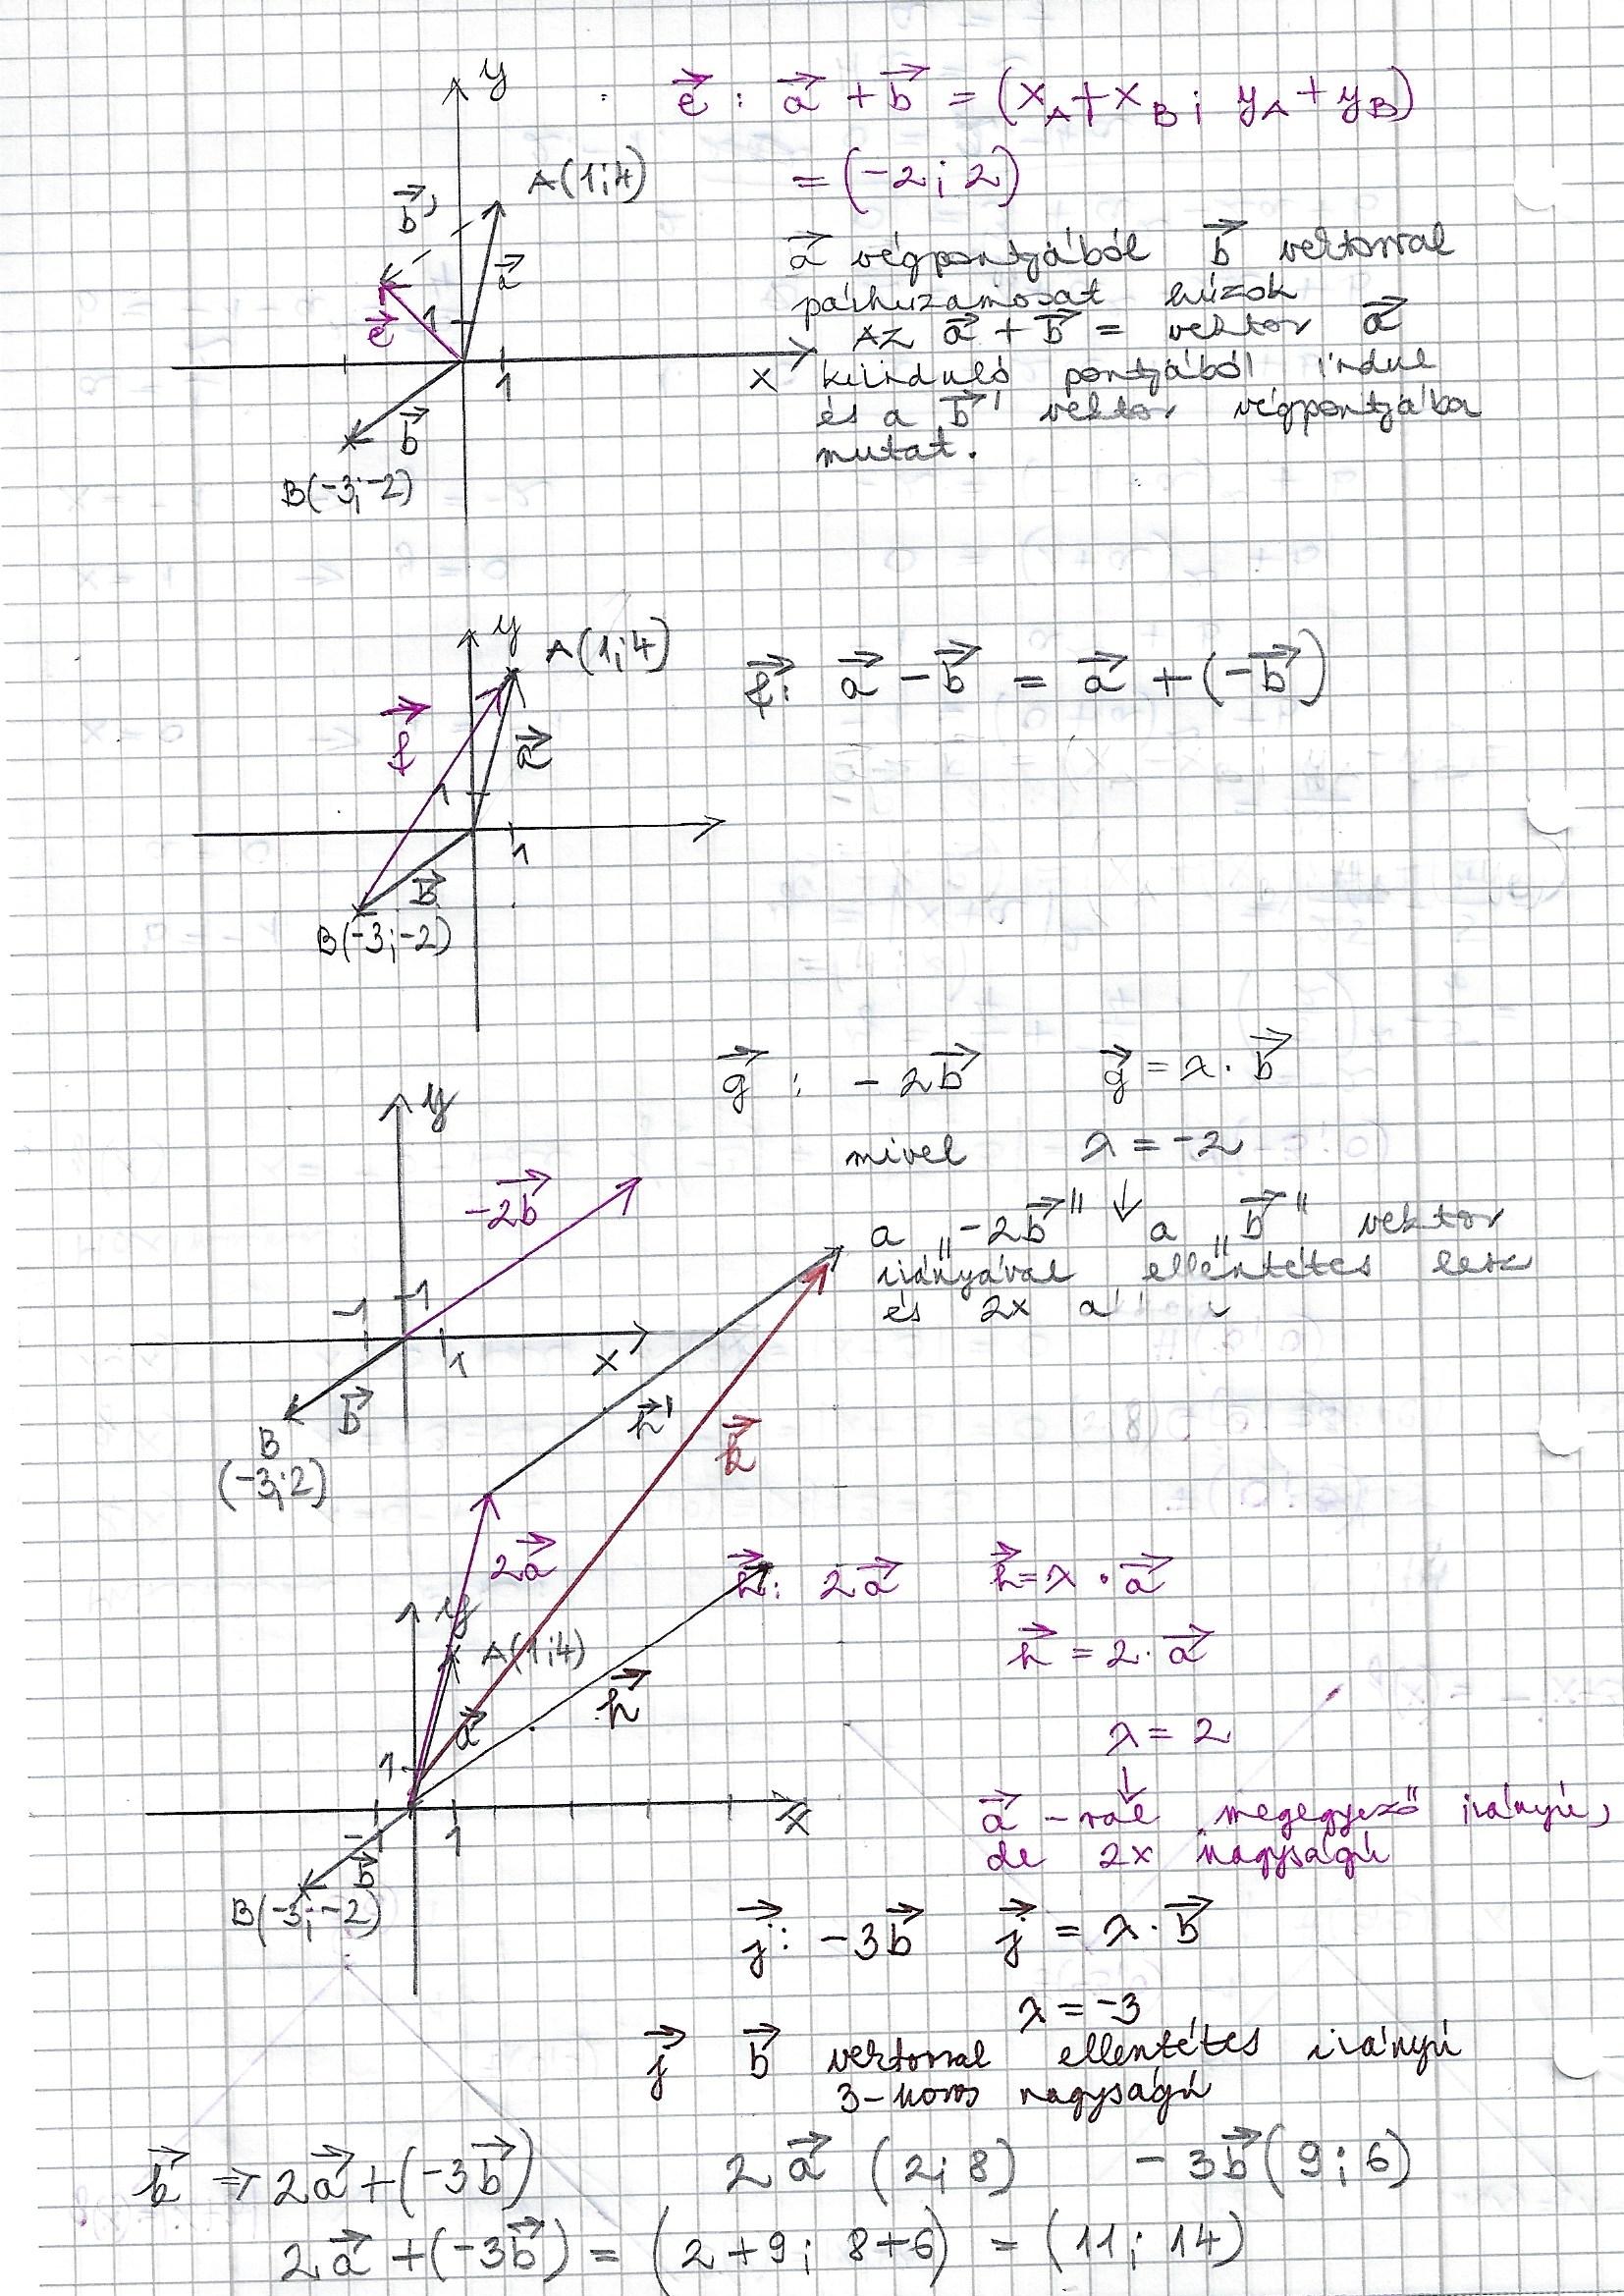 y
e⃗ : a⃗ + b⃗ = (x_A + x_B ; y_A + y_B)
A(1;4)
= (-2 ; 2)
b⃗'
a⃗
e⃗
1
x
1
b⃗
B(-3;-2)
a⃗ végpontjából b⃗ vektorral
párhuzamosat húzok
Az a⃗ + b⃗ = vektor a⃗
kiinduló pontjából indul
és a b⃗' vektor végpontjába
mutat.
y
A(1;4)
f⃗: a⃗ - b⃗ = a⃗ + (-b⃗)
f⃗
a⃗
1
1
b⃗
B(-3;-2)
g⃗ : -2b⃗ g⃗ = λ · b⃗
y
mivel λ = -2
-2b⃗
↓
a „-2b⃗" a „b⃗" vektor
irányával ellentétes lesz
és 2x a
-1
1
1
x
b⃗
B
(-3;2)
h⃗'
k⃗
2a⃗
h⃗: 2a⃗ h⃗ = λ · a⃗
y
A(1;4)
h⃗ = 2 · a⃗
h⃗
a⃗
λ = 2
↓
1
x
-1
1
a⃗ -ral megegyező irányú,
de 2x nagyságú
b⃗
B(-3;-2)
j⃗: -3b⃗ j⃗ = λ · b⃗
λ = -3
j⃗ b⃗ vektorral ellentétes irányú
3-szoros nagyságú
k⃗ ⇒ 2a⃗ + (-3b⃗) 2a⃗ (2;8) -3b⃗ (9;6)
2a⃗ + (-3b⃗) = (2+9; 8+6) = (11; 14)